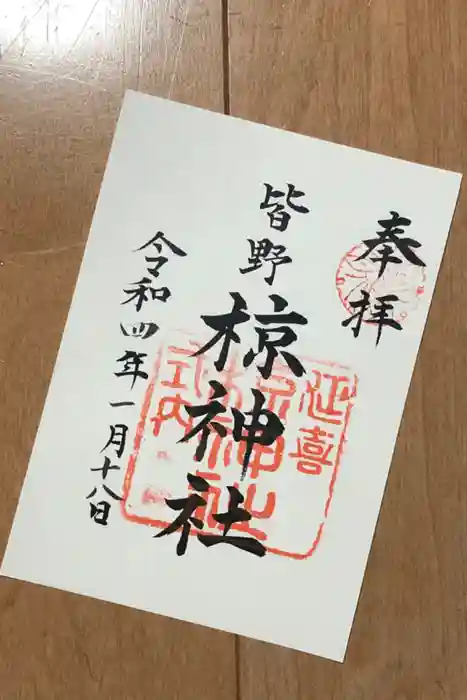 奉拝
皆野
椋神社
令和四年一月十八日
延喜
式内
椋神社